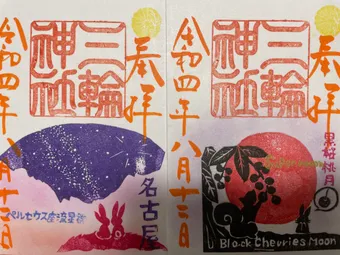 奉拝
三輪
神社
令和四年八月十三日
ペルセウス座流星群
名古屋
奉拝
三輪
神社
令和四年八月十二日
黒桜桃月
Black Cherries Moon